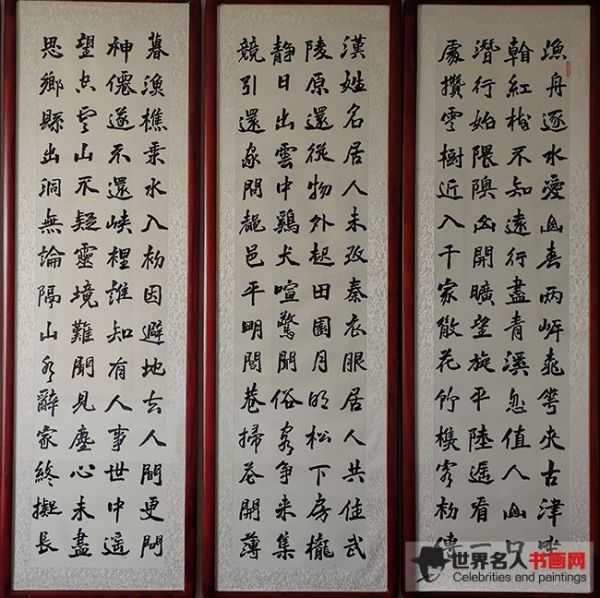 漁舟逐水愛山春兩岸桃花夾古津坐
翰紅樹不知遠行盡青溪忽值人山口
潛行始隈隩山開曠望旋平陸遥看一
處攢雲樹近入千家散花竹樵客初傳
漢姓名居人未改秦衣服居人共住武
陵原還從物外起田園月明松下房櫳
靜日出雲中鷄犬喧驚聞俗客爭来集
競引還家問都邑平明閭巷掃花開薄
暮漁樵乘水入初因避地去人間更問
神僊遂不還峽裡誰知有人事世中遥
望空雲山不疑靈境難聞見塵心未盡
思鄉縣出洞無論隔山水辭家終擬長
世界名人书画网
Celebrities and paintings